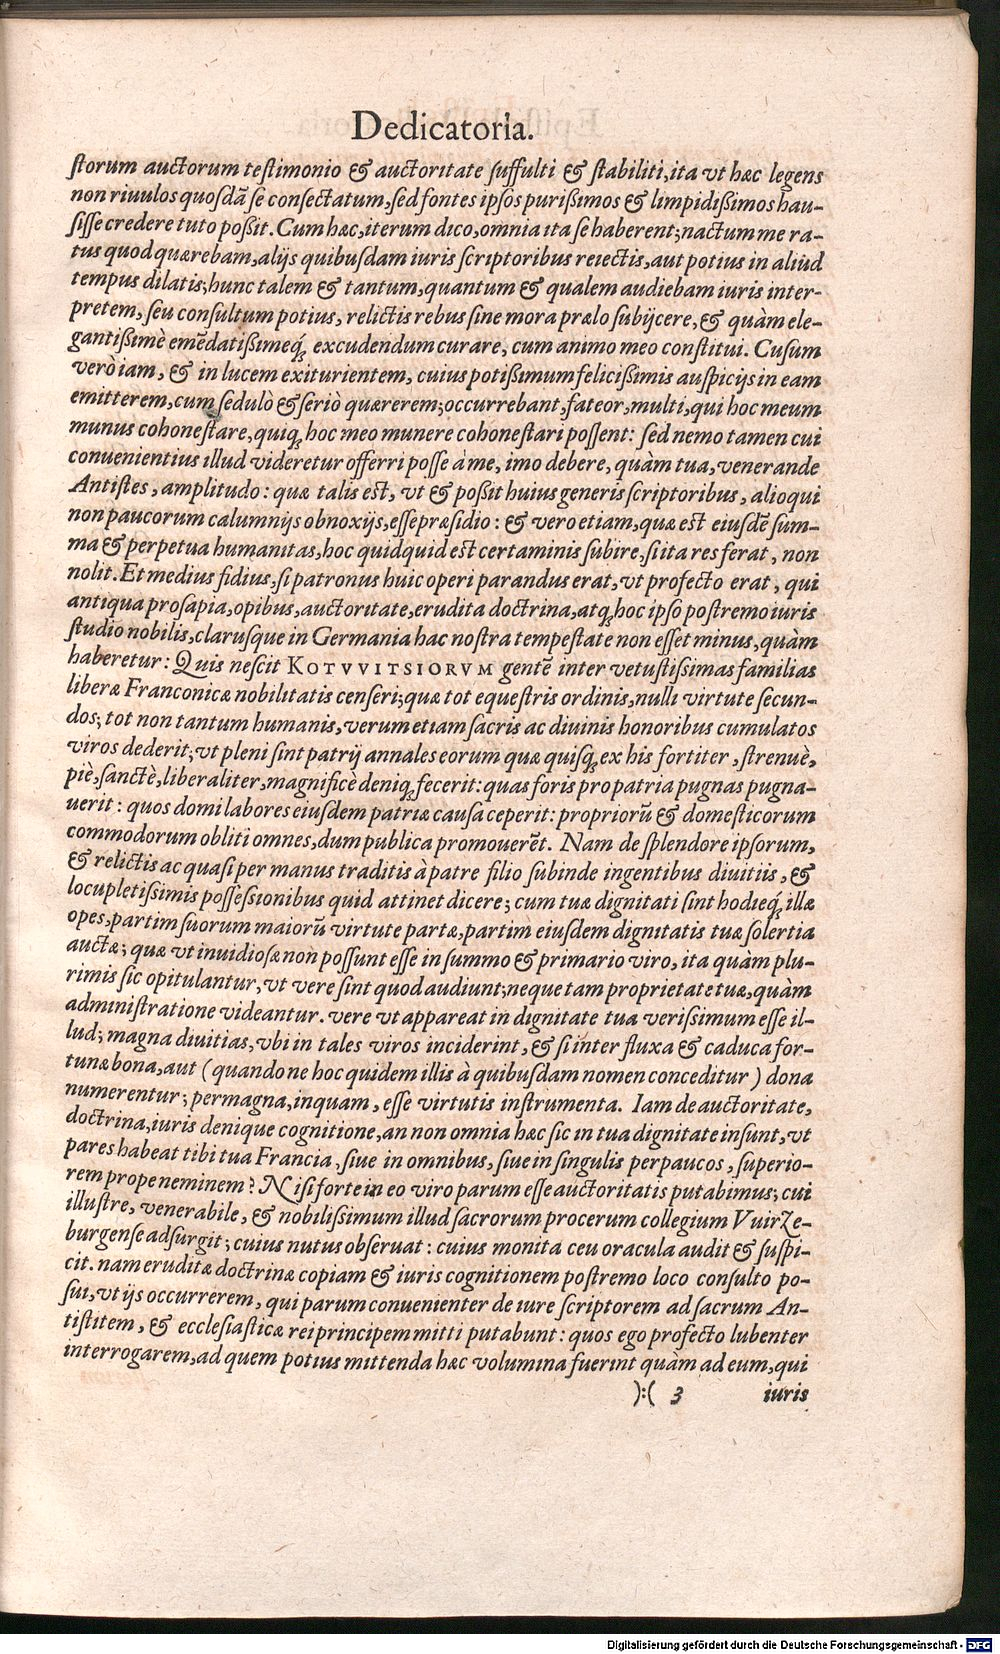 Dedicatoria.
ſtorum auctorum teſtimonio & auctoritate ſuffulti & ſtabiliti, ita vt hæc legens
non riuulos quoſdã ſe conſectatum, ſed fontes ipſos purißimos & limpidißimos hau-
ſiſſe credere tuto poßit. Cum hæc, iterum dico, omnia ita ſe haberent; nactum me ra-
tus quod quærebam, alijs quibuſdam iuris ſcriptoribus reiectis, aut potius in aliud
tempus dilatis; hunc talem & tantum, quantum & qualem audiebam iuris inter-
pretem, ſeu conſultum potius, relictis rebus ſine mora prælo ſubijcere, & quàm ele-
gantißimè emẽdatißimeq́; excudendum curare, cum animo meo conſtitui. Cuſum
verò iam, & in lucem exiturientem, cuius potißimum felicißimis auſpicijs in eam
emitterem, cum ſedulò & ſeriò quærerem; occurrebant, fateor, multi, qui hoc meum
munus cohoneſtare, quiq́; hoc meo munere cohoneſtari poſſent: ſed nemo tamen cui
conuenientius illud videretur offerri poſſe à me, imo debere, quàm tua, venerande
Antiſtes, amplitudo: quæ talis eſt, vt & poßit huius generis ſcriptoribus, alioqui
non paucorum calumnijs obnoxijs, eſſe præſidio: & vero etiam, quæ eſt eiuſdẽ ſum-
ma & perpetua humanitas, hoc quidquid eſt certaminis ſubire, ſi ita res ferat, non
nolit. Et medius fidius, ſi patronus huic operi parandus erat, vt profecto erat, qui
antiqua proſapia, opibus, auctoritate, erudita doctrina, atq́; hoc ipſo poſtremo iuris
ſtudio nobilis, claruſque in Germania hac noſtra tempeſtate non eſſet minus, quàm
haberetur: Quis neſcit KOTVVITSIORVM gentẽ inter vetuſtiſſimas familias
liberæ Franconicæ nobilitatis cenſeri; quæ tot equeſtris ordinis, nulli virtute ſecun-
dos; tot non tantum humanis, verum etiam ſacris ac diuinis honoribus cumulatos
viros dederit; vt pleni ſint patrij annales eorum quæ quiſq́; ex his fortiter, ſtrenuè,
piè, ſanctè, liberaliter, magnificè deniq́; fecerit: quas foris pro patria pugnas pugna-
uerit: quos domi labores eiuſdem patriæ cauſa ceperit: propriorũ & domeſticorum
commodorum obliti omnes, dum publica promouerẽt. Nam de ſplendore ipſorum,
& relictis ac quaſi per manus traditis à patre filio ſubinde ingentibus diuitiis, &
locupletiſſimis poſſeſſionibus quid attinet dicere; cum tuæ dignitati ſint hodieq́; illæ
opes, partim ſuorum maiorũ virtute partæ, partim eiuſdem dignitatis tuæ ſolertia
auctæ; quæ vt inuidioſæ non poſſunt eſſe in ſummo & primario viro, ita quàm plu-
rimis ſic opitulantur, vt vere ſint quod audiunt; neque tam proprietate tuæ, quàm
adminiſtratione videantur. vere vt appareat in dignitate tua veriſſimum eſſe il-
lud; magna diuitias, vbi in tales viros inciderint, & ſi inter fluxa & caduca for-
tunæ bona, aut (quando ne hoc quidem illis à quibuſdam nomen conceditur) dona
numerentur; permagna, inquam, eſſe virtutis inſtrumenta. Iam de auctoritate,
doctrina, iuris denique cognitione, an non omnia hæc ſic in tua dignitate inſunt, vt
pares habeat tibi tua Francia, ſiue in omnibus, ſiue in ſingulis perpaucos, ſuperio-
rem prope neminem? Niſi forte in eo viro parum eſſe auctoritatis putabimus; cui
illuſtre, venerabile, & nobiliſſimum illud ſacrorum procerum collegium VuirZe-
burgenſe adſurgit; cuius nutus obſeruat: cuius monita ceu oracula audit & ſuſpi-
cit. nam eruditæ doctrinæ copiam & iuris cognitionem poſtremo loco conſulto po-
ſui, vt ijs occurrerem, qui parum conuenienter de iure ſcriptorem ad ſacrum An-
tiſtitem, & eccleſiaſticæ rei principem mitti putabunt: quos ego profecto lubenter
interrogarem, ad quem potius mittenda hæc volumina fuerint quàm ad eum, qui
):( 3 iuris
Digitalisierung gefördert durch die Deutsche Forschungsgemeinschaft - DFG